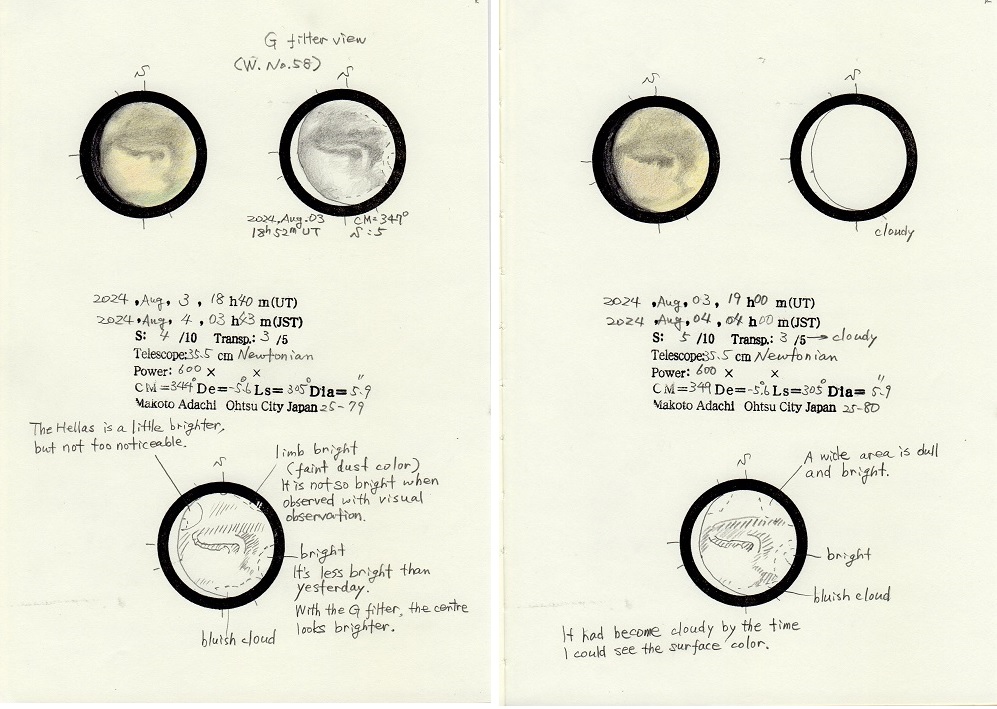 G filter view
(W. No.58)
S
S
2024, Aug. 03
18h 52m UT
CM=347°
S:5
2024, Aug, 3, 18 h40 m(UT)
2024, Aug, 4, 03 h43 m(JST)
S: 4 /10 Transp.: 3 /5
Telescope:35.5 cm Newtonian
Power: 600 × ×
CM=344° De=-5.6° Ls=305° Dia=5.9"
Makoto Adachi Ohtsu City Japan 25-79
The Hellas is a little brighter,
but not too noticeable.
S
limb bright
(faint dust color)
It is not so bright when
observed with visual
observation.
bright
It's less bright than
yesterday.
With the G filter, the centre
looks brighter.
bluish cloud
S
S
cloudy
2024, Aug, 03, 19 h00 m(UT)
2024, Aug, 04, 04 h00 m(JST)
S: 5 /10 Transp.: 3 /5→cloudy
Telescope:35.5 cm Newtonian
Power: 600 × ×
CM=349 De=-5.6° Ls=305° Dia=5.9"
Makoto Adachi Ohtsu City Japan 25-80
S
A wide area is dull
and bright.
bright
bluish cloud
It had become cloudy by the time
I could see the surface color.